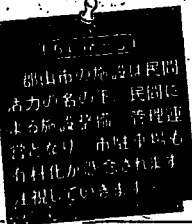 郡山市の施設は民間
活力の名の下、民間に
よる施設整備・管理運
営となり、市駐車場も
有料化が懸念されます